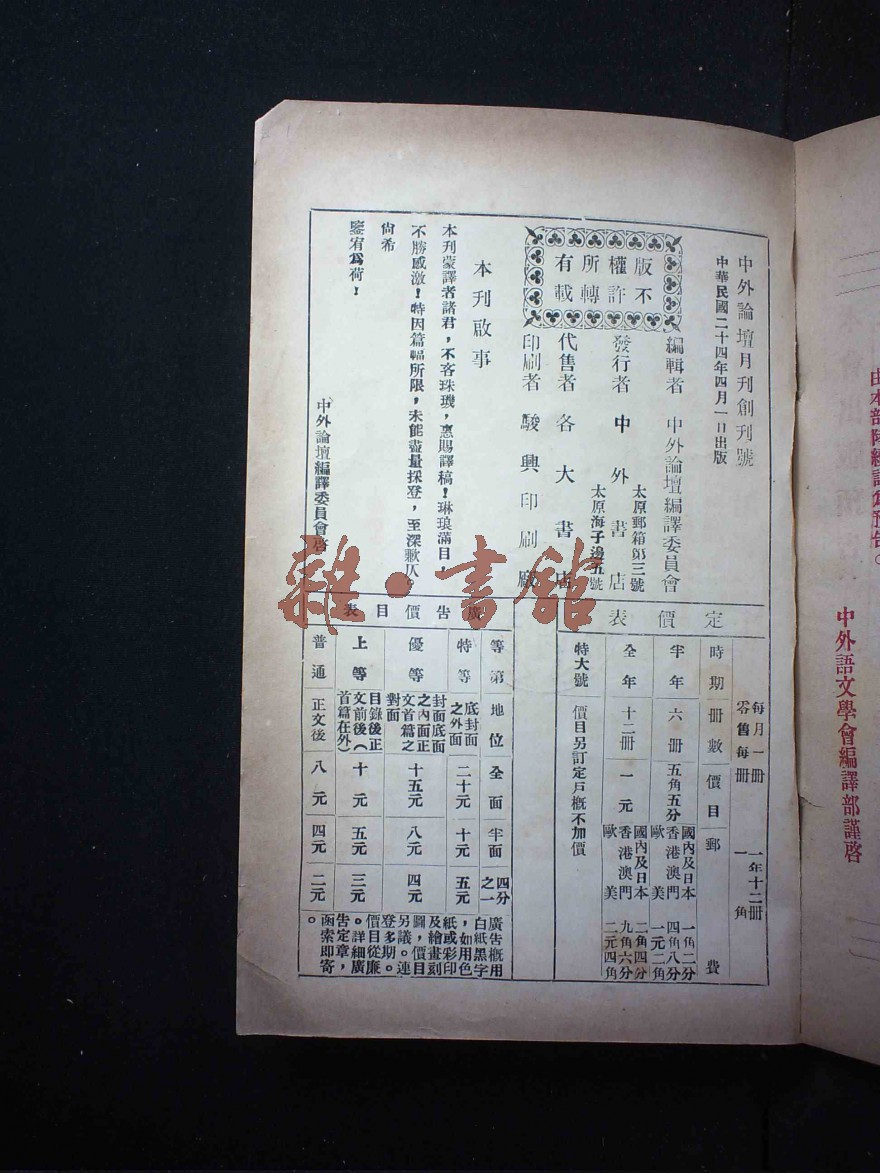 中外論壇月刊創刊號
中華民國二十四年四月一日出版
版權所有
不許轉載
編輯者 中外論壇編譯委員會
太原郵箱第三號
發行者 中外書店
太原海子邊五號
代售者 各大書店
印刷者 駿興印刷廠
本刊啟事
本刊蒙譯者諸君,不吝珠璣,惠賜譯稿!琳琅滿目,
不勝感激!特因篇幅所限,未能盡量採登,至深歉仄。
尚希
鑒宥爲荷!
中外論壇編譯委員會啓
定價表
每月一冊 一年十二冊
零售每冊 一角
時期 冊數 價目 郵費
半年 六冊 五角五分 國內及日本 一角二分 香港澳門 四角八分 歐美 一元二角
全年 十二冊 一元 國內及日本 二角四分 香港澳門 九角六分 歐美 二元四角
特大號 價目另訂定戶概不加價
廣告價目表
等第 地位 全面 半面 四分之一
特等 底封面之外面 二十元 十元 五元
優等 封面底面之內面正文首篇之對面 十五元 八元 四元
上等 目錄後正文前後(首篇在外) 十元 五元 三元
普通 正文後 八元 四元 二元
廣告概用
白紙黑字
,如用色
紙或彩印
及繪畫刻
圖,價目
另議。連
登多期。
價目從廉
。詳細廣
告定章,
函索即寄
。
雜·書館
中外語文學會編譯部謹啓